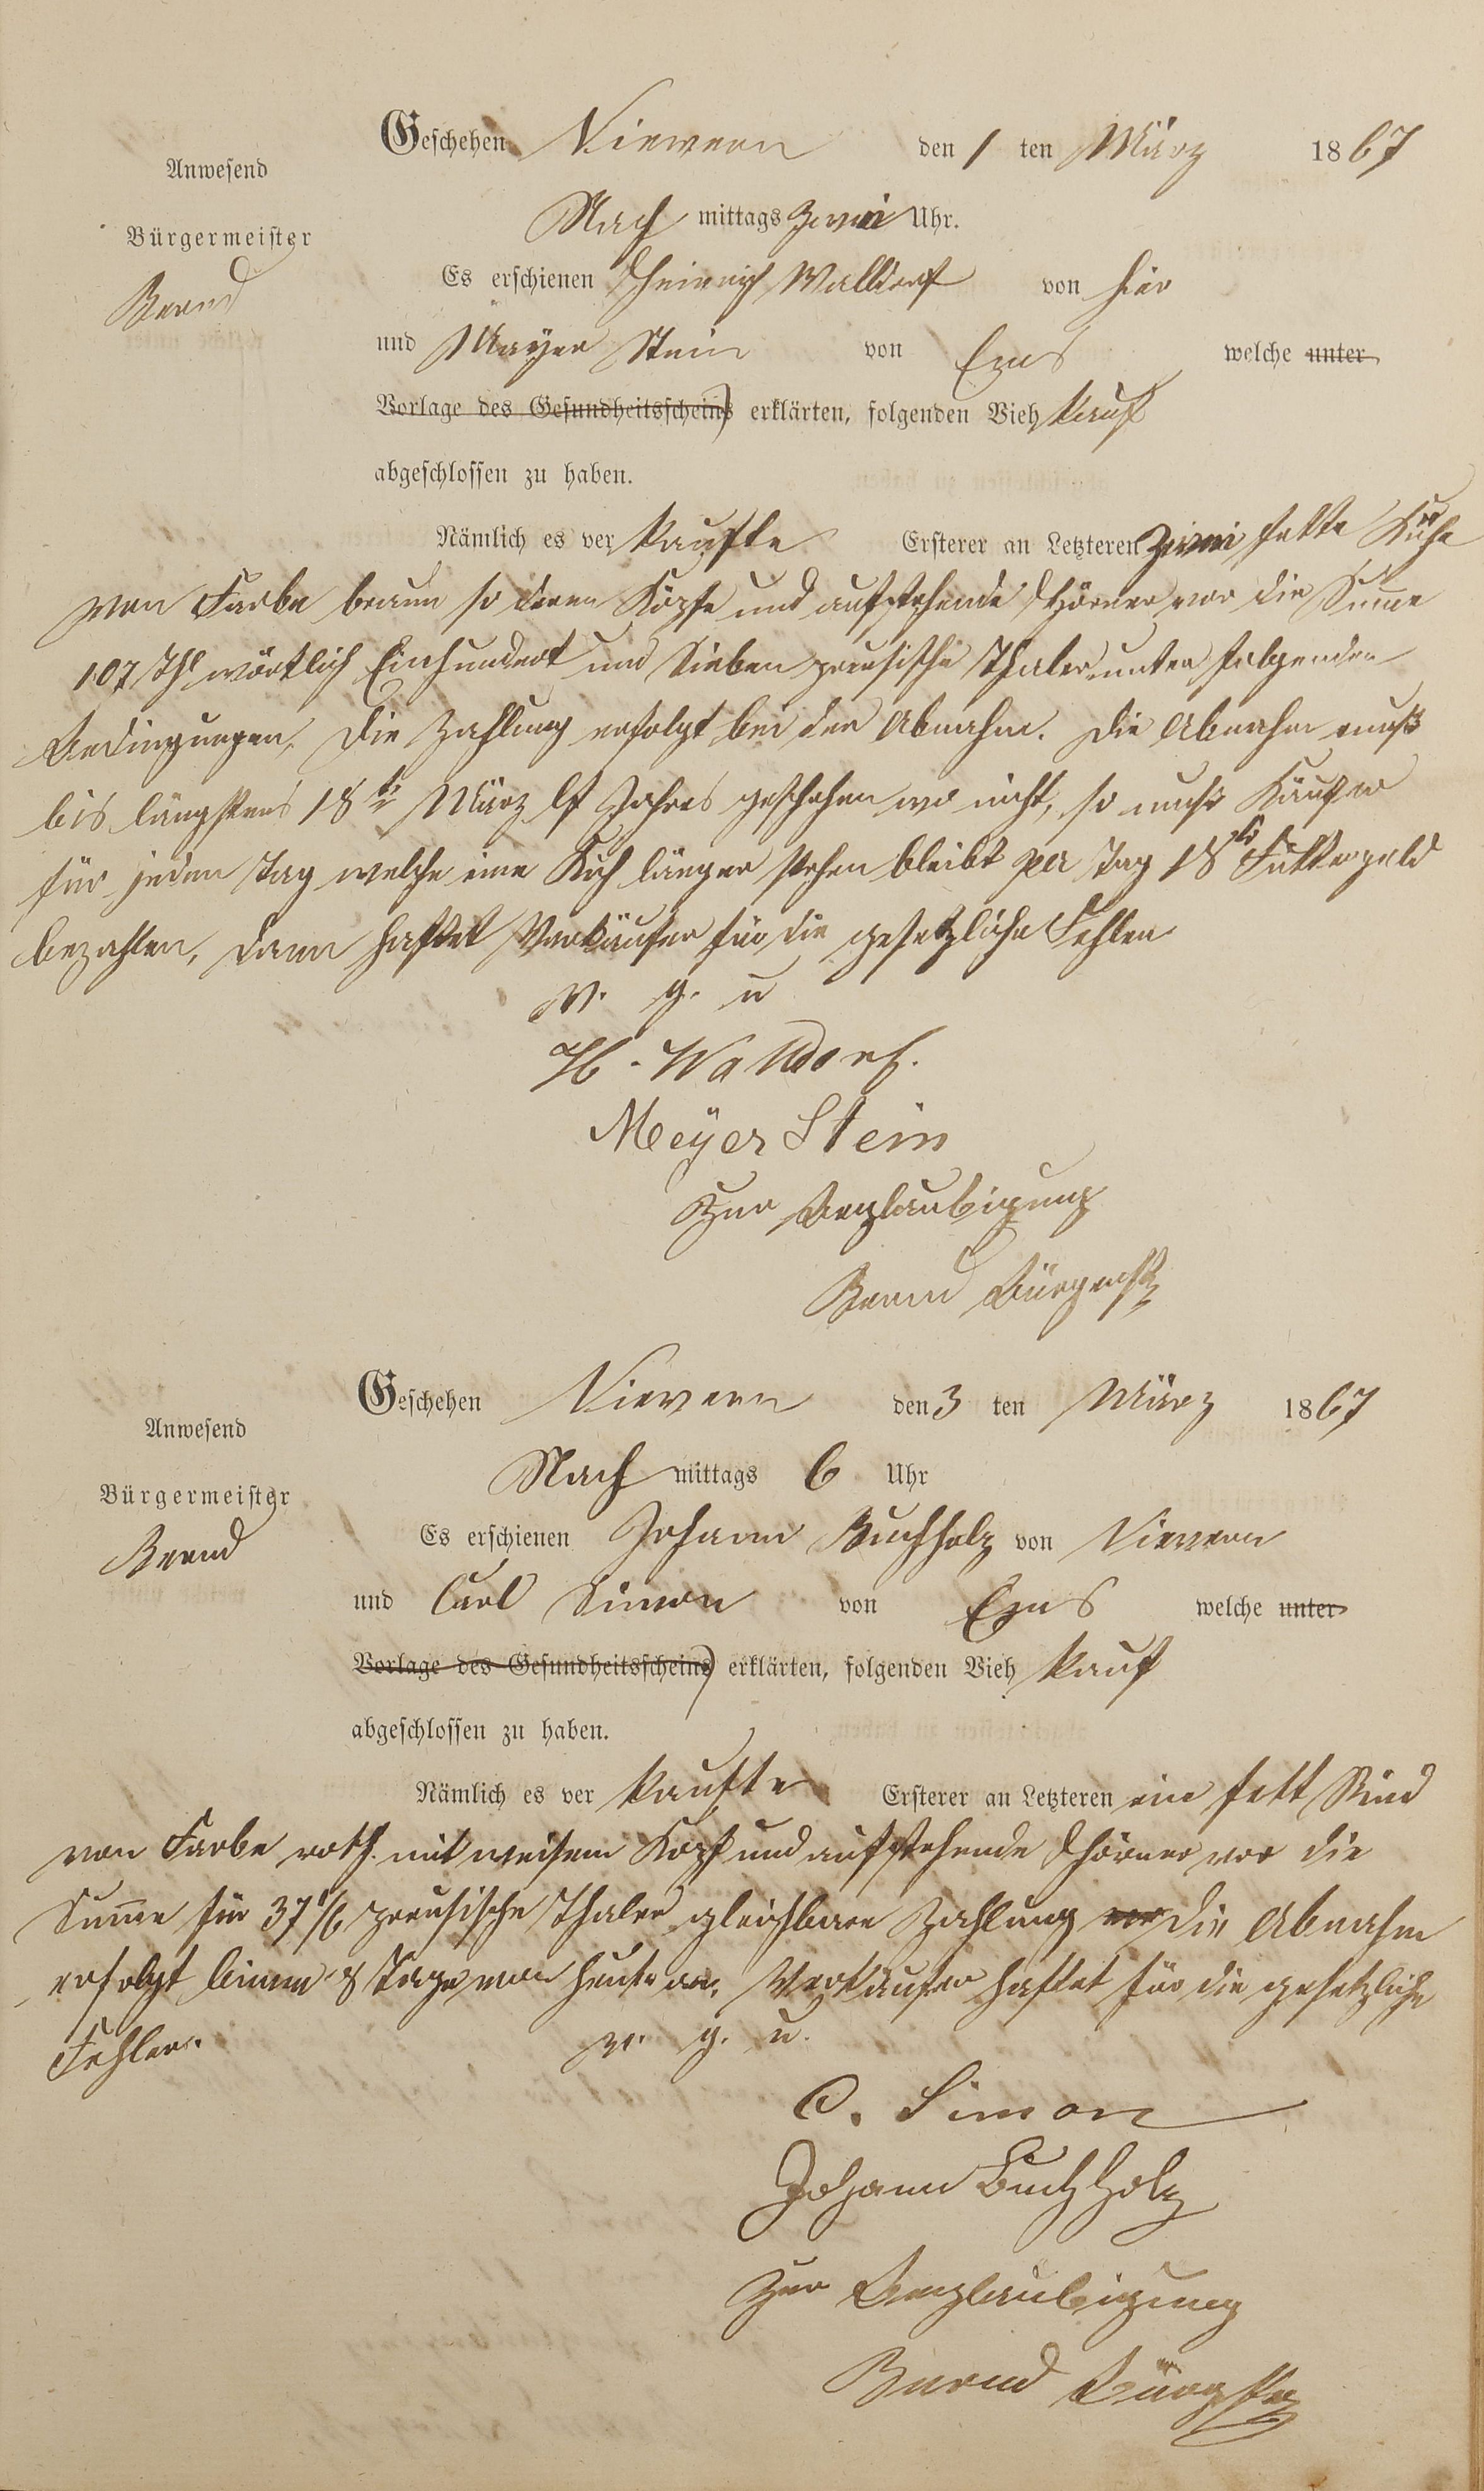 Geschehen Nievern den 1 ten März 1867
Anwesend
Nach mittags zwei Uhr.
Bürgermeister
Es erschienen Heinrich Walldorf von hier
Bernd
und Mayer Stein von Ems welche unter
Vorlage des Gesundheitsscheins erklärten, folgenden Vieh kauf
abgeschlossen zu haben.
Nämlich es ver kaufte Ersterer an Letzteren zwei fette Kühe
von Farbe braun so deren Köpfe und aufstehende Hörner vor die Summe
107 Thl wörtlich Einhundert und Sieben preusische Thaler unter folgenden
Bedingungen, Die Zahlung erfolgt bei der Abnahm. Die Abnahm muß
bis längstens 18te März lf Jahres geschehen wo nicht, so muß Käufer
für jeden Tag welche eine Kuh länger stehen bleibt per Tag 18 Futtergeld
bezahlen, dann haftet Verkäufer für die gesetzliche Fehler
v. g. u
H. Walldorf.
Meyer Stein
Zur Beglaubigung
Bernd Bürgermstr
Geschehen Nievern den 3 ten März 1867
Anwesend
Nach mittags 6 Uhr
Bürgermeister
Es erschienen Johann Buchholz von Nievern
Bernd
und Carl Simon von Ems welche unter
Vorlage des Gesundheitsscheins erklärten, folgenden Vieh kauf
abgeschlossen zu haben.
Nämlich es ver kaufte Ersterer an Letzteren ein fett Rind
von Farbe roth mit weisem Kopf und aufstehende Hörner vor die
Summe für 37 1/6 preusische Thaler gleichbare Zahlung vor die Abnahm
erfolgt binnen 8 Tage von heute an, Verkäufer haftet für die gesetzliche
Fehler. v. g. u.
C. Simon
Johann Buchholz
Zur Beglaubigung
Bernd Bürgmstr